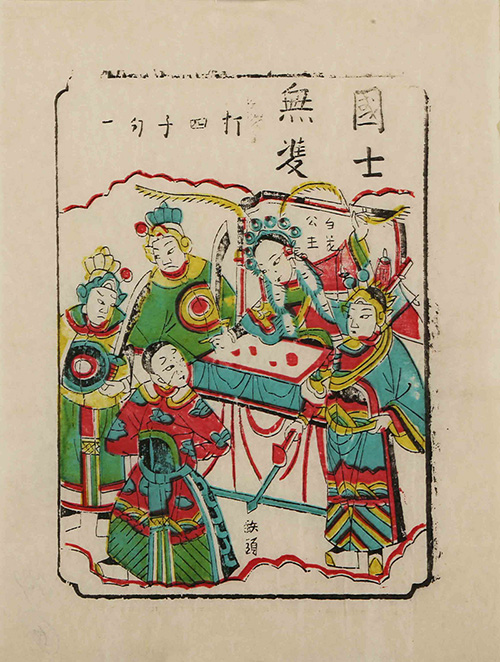 國士
無雙
打四子句一
白花
公主
鉄頭